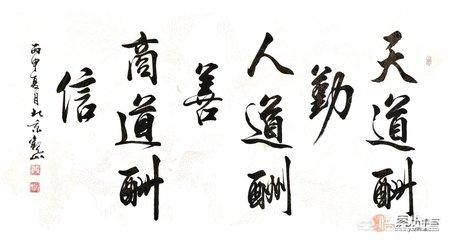 天道酬
勤
人道酬
善
商道酬
信
丙申夏月於京